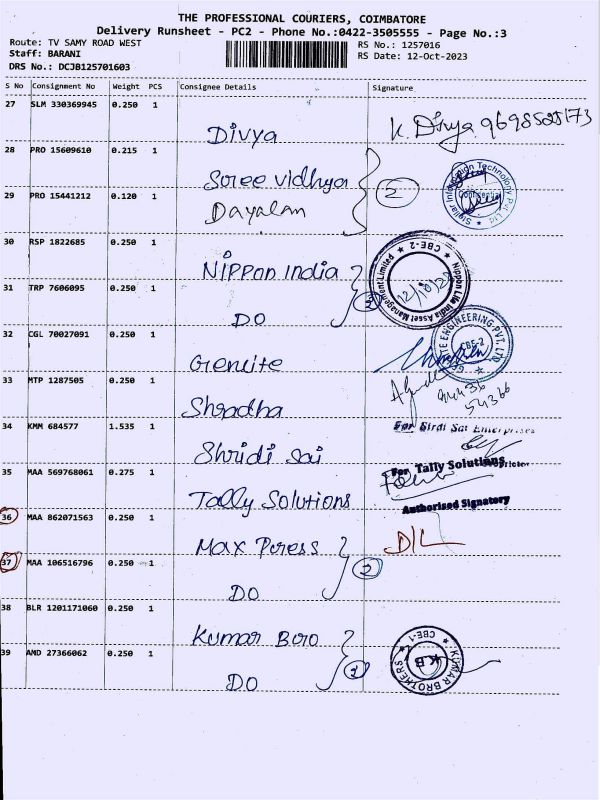 THE PROFESSIONAL COURIERS, COIMBATORE
Delivery Runsheet - PC2 - Phone No.:0422-3505555 - Page No.:3
Route: TV SAMY ROAD WEST
Staff: BARANI
DRS No.: DCJB125701603
RS No.: 1257016
RS Date: 12-Oct-2023
S No Consignment No Weight PCS Consignee Details Signature
27 SLM 330369945 0.250 1
Divya K. Divya 9698525173
28 PRO 15609610 0.215 1
Sree Vidhya 2
Stellar Information Technology Pvt Ltd
29 PRO 15441212 0.120 1
Dayalan
30 RSP 1822685 0.250 1
Nippon India
Nippon Life India Asset Management Limited
CBE-2
12/10/23
31 TRP 7606095 0.250 1
DO
32 CGL 70027091 0.250 1
Genuite
ENGINEERING PVT. LTD
CBE-2
33 MTP 1287505 0.250 1
Shradha
94436
54366
34 KMM 684577 1.535 1
Shridi Sai
For Sirdi Sai Enterprises
Proprietor
35 MAA 569768061 0.275 1
Tally Solutions
For Tally Solutions
Authorised Signatory
36 MAA 862071563 0.250 1
Max Press 2
D/L
37 MAA 106516796 0.250 1
DO
38 BLR 1201171060 0.250 1
Kumar Bro
KUMAR BROTHERS
CBE-1
KB
39 AMD 27366062 0.250 1
DO